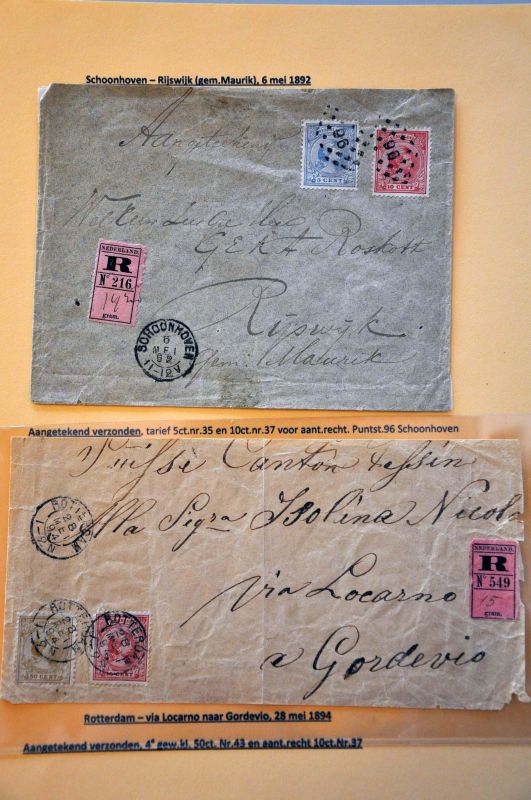 Schoonhoven – Rijswijk (gem.Maurik), 6 mei 1892
Aangetekend
5 CENT
10 CENT
96
96
G.E.K.H. Roskott
Rijswijk
gem. Maurik
NEDERLAND.
R
No 216.
gram.
SCHOONHOVEN
6
MEI
92
11-12V
Aangetekend verzonden, tarief 5ct.nr.35 en 10ct.nr.37 voor aant.recht. Puntst.96 Schoonhoven
Suisse Canton Tessin
Alla Sigra Isolina Nicol
via Locarno
a Gordevio
NEDERLAND.
R
No 549
15
gram.
ROTTERDAM
28
MEI
94
50 CENT
10 CENT
Rotterdam – via Locarno naar Gordevio, 28 mei 1894
Aangetekend verzonden, 4e gew.kl. 50ct. Nr.43 en aant.recht 10ct.Nr.37